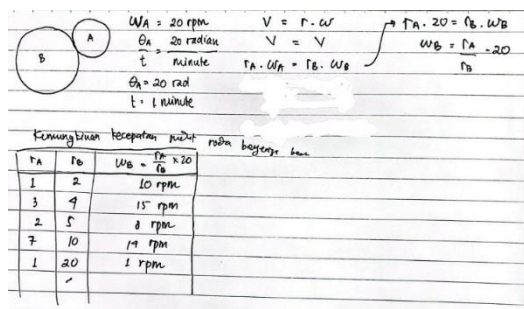 A
B
ωA = 20 rpm
θA/t = 20 radian/minute
θA = 20 rad
t = 1 minute
V = r · ω
V = V
rA · ωA = rB · ωB
rA · 20 = rB · ωB
ωB = rA/rB · 20
Kemungkinan kecepatan roda
rA rB ωB = rA/rB × 20
1 2 10 rpm
3 4 15 rpm
2 5 8 rpm
7 10 14 rpm
1 20 1 rpm